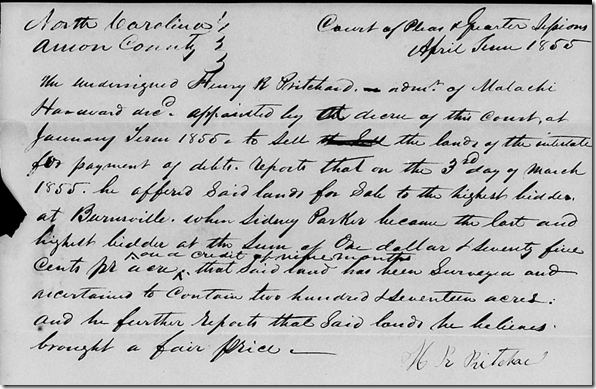 North Carolina
Court of Pleas & Quarter Sessions
Anson County
April Term 1855
The undersigned Henry R Pritchard - admr. of Malachi
Haward decd. appointed by the decree of this Court, at
January Term 1855. to Sell the lands of the intestate
for payment of debts. reports that on the 3rd day of March
1855. he offered Said lands for Sale to the highest bidder.
at Burnsville. when Sidney Parker became the last and
highest bidder at the Sum of One dollar & seventy five
on a credit of nine months
cents pr acre. that Said land has been Surveyed and
ascertained to Contain two hundred & seventeen acres.
and he further reports that Said lands he believes.
brought a fair price -
H R Pritchard